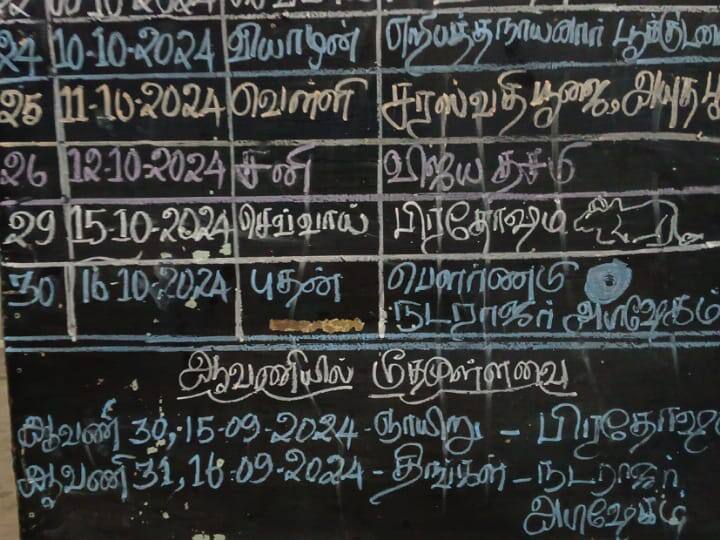 24 10-10-2024 வியாழன் எறிபத்தநாயனார்
25 11-10-2024 வெள்ளி சரஸ்வதி பூஜை, ஆயுத பூ
26 12-10-2024 சனி விஜய தசமி
29 15-10-2024 செவ்வாய் பிரதோஷம்
30 16-10-2024 புதன் பௌர்ணமி
நடராஜர் அபிஷேகம்
ஆவணியில் மீதமுள்ளவை
ஆவணி 30, 15-09-2024 - ஞாயிறு - பிரதோஷம
ஆவணி 31, 16-09-2024 - திங்கள் - நடராஜர்
அபிஷேகம்